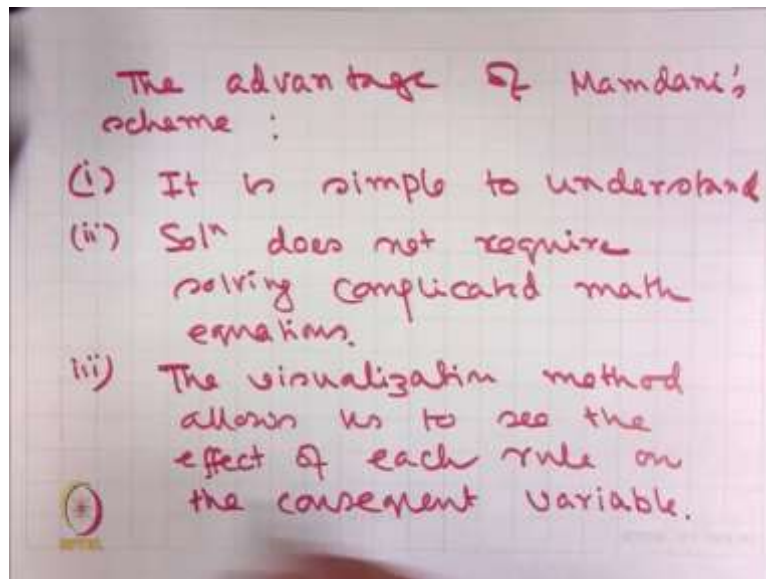 The advantage of Mamdani's
scheme :
(i) It is simple to understand
(ii) Solⁿ does not require
solving complicated math
equations.
iii) The visualization method
allows us to see the
effect of each rule on
the consequent variable.
NPTEL